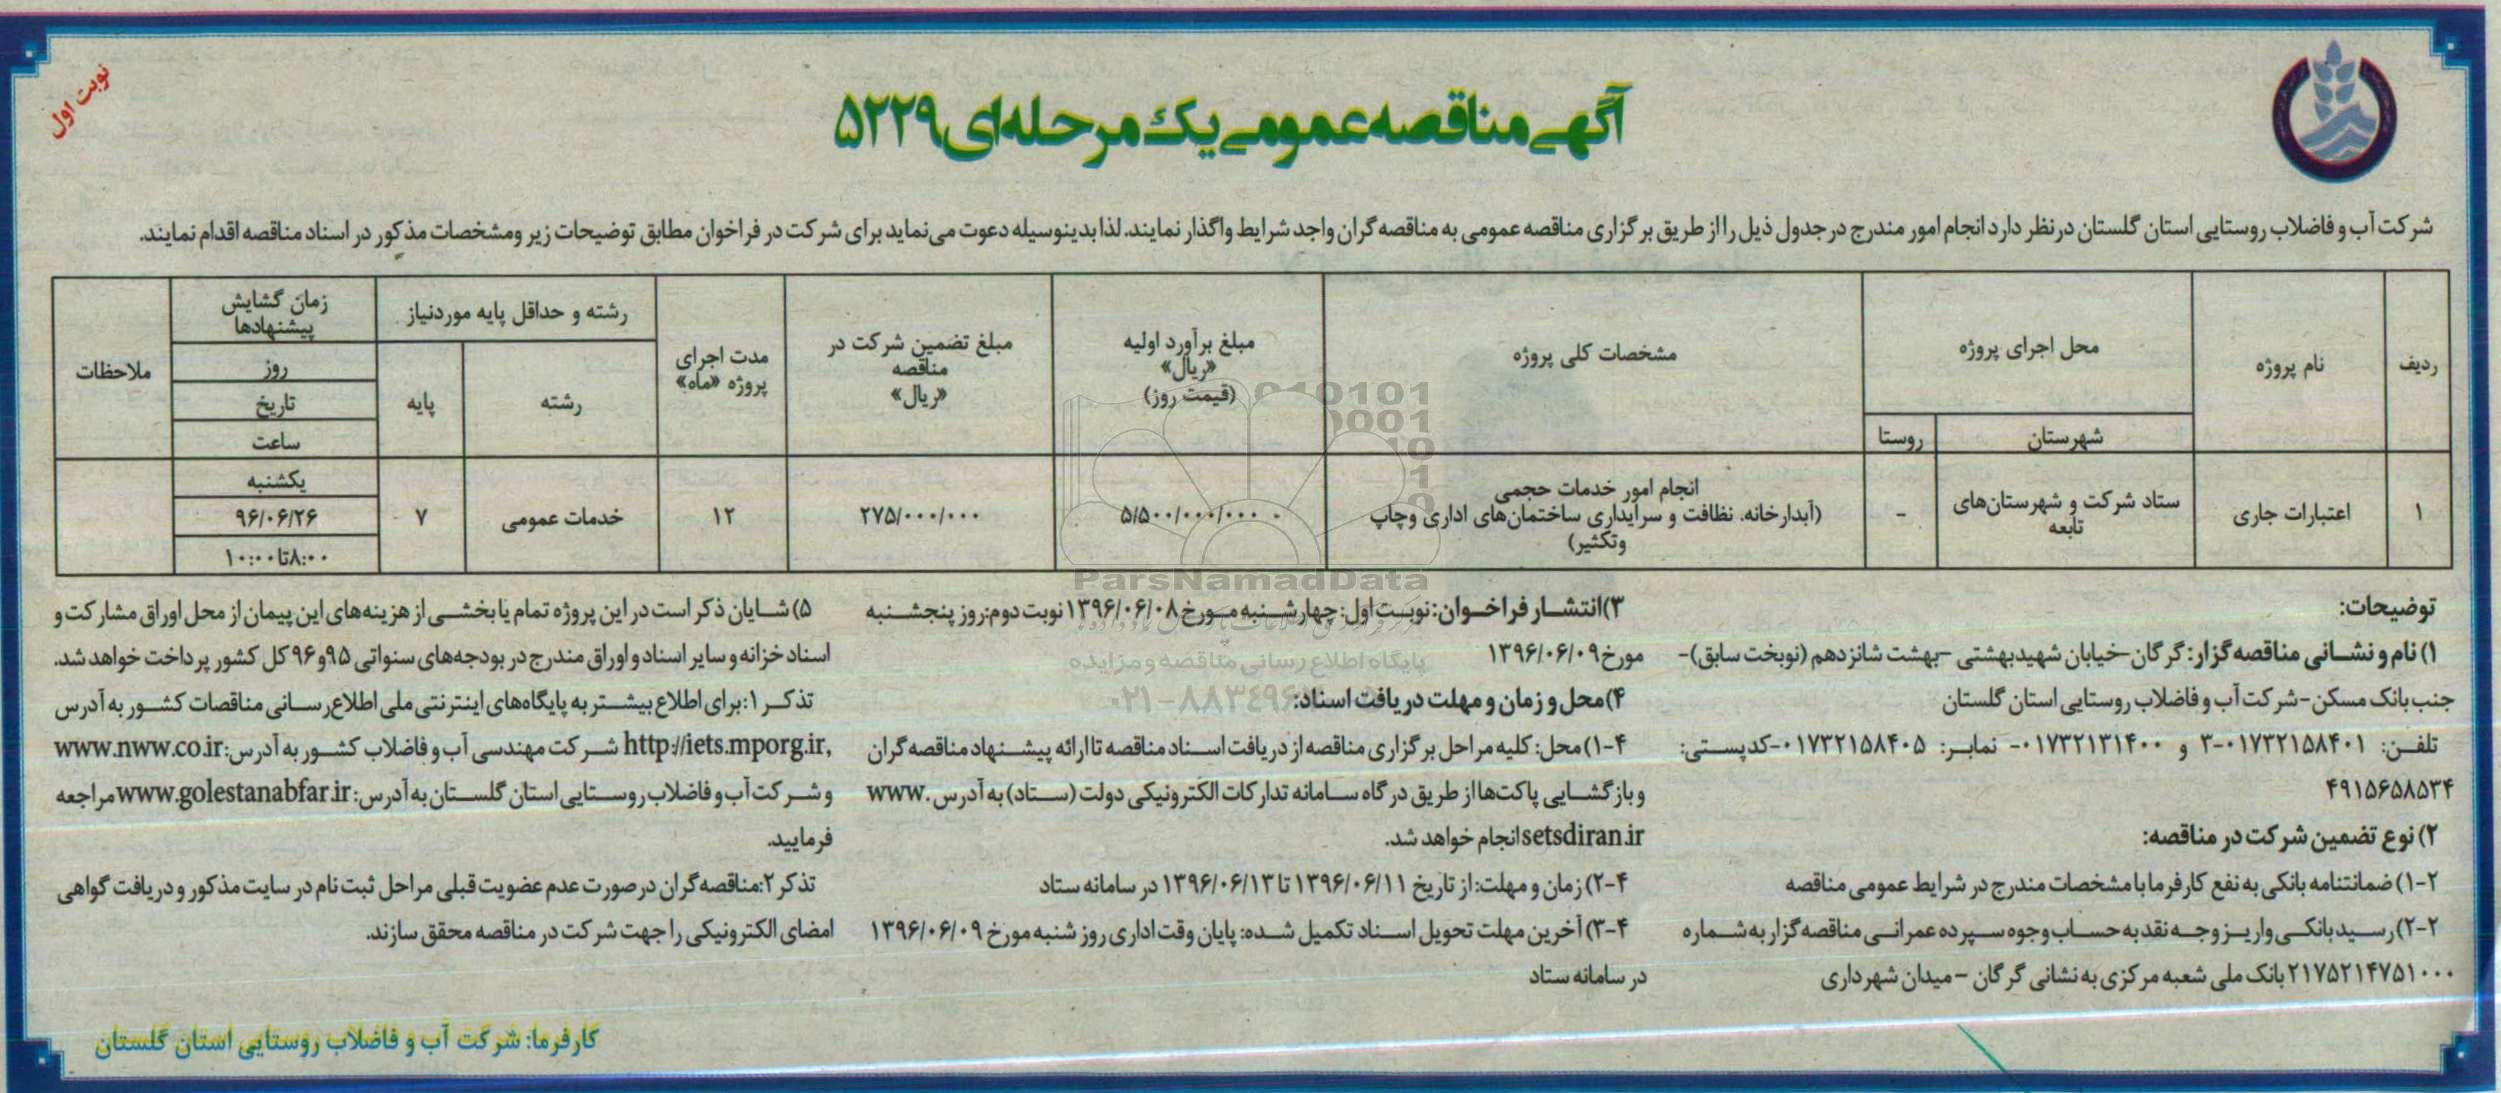 نوبت اول
آگهی مناقصه عمومی یک مرحله‌ای ۵۲۲۹
شرکت آب و فاضلاب روستایی استان گلستان درنظر دارد انجام امور مندرج در جدول ذیل را از طریق برگزاری مناقصه عمومی به مناقصه گران واجد شرایط واگذار نمایند. لذا بدینوسیله دعوت می‌نماید برای شرکت در فراخوان مطابق توضیحات زیر ومشخصات مذکور در اسناد مناقصه اقدام نمایند.
ردیف
نام پروژه
محل اجرای پروژه
شهرستان
روستا
مشخصات کلی پروژه
مبلغ برآورد اولیه
«ریال»
(قیمت روز)
مبلغ تضمین شرکت در
مناقصه
«ریال»
مدت اجرای
پروژه «ماه»
رشته و حداقل پایه موردنیاز
رشته
پایه
زمان گشایش
پیشنهادها
روز
تاریخ
ساعت
ملاحظات
۱
اعتبارات جاری
ستاد شرکت و شهرستان‌های
تابعه
-
انجام امور خدمات حجمی
(آبدارخانه، نظافت و سرایداری ساختمان‌های اداری وچاپ
وتکثیر)
۵/۵۰۰/۰۰۰/۰۰۰
۲۷۵/۰۰۰/۰۰۰
۱۲
خدمات عمومی
۷
یکشنبه
۹۶/۰۶/۲۶
۸:۰۰تا۱۰:۰۰
توضیحات:
۱) نام و نشانی مناقصه گزار: گرگان-خیابان شهیدبهشتی -بهشت شانزدهم (نوبخت سابق)-
جنب بانک مسکن-شرکت آب و فاضلاب روستایی استان گلستان
تلفن: ۰۱۷۳۲۱۵۸۴۰۱-۳ و ۰۱۷۳۲۱۳۱۴۰۰- نمابر: ۰۱۷۳۲۱۵۸۴۰۵-کدپستی:
۴۹۱۵۶۵۸۵۳۴
۲) نوع تضمین شرکت در مناقصه:
۲-۱) ضمانتنامه بانکی به نفع کارفرما با مشخصات مندرج در شرایط عمومی مناقصه
۲-۲) رسید بانکی واریز وجه نقد به حساب وجوه سپرده عمرانی مناقصه گزار به شماره
۲۱۷۵۲۱۴۷۵۱۰۰۰ بانک ملی شعبه مرکزی به نشانی گرگان - میدان شهرداری
۳)انتشار فراخوان: نوبت اول: چهارشنبه مورخ ۱۳۹۶/۰۶/۰۸ نوبت دوم:روز پنجشنبه
مورخ ۱۳۹۶/۰۶/۰۹
۴) محل و زمان و مهلت دریافت اسناد:
۴-۱) محل: کلیه مراحل برگزاری مناقصه از دریافت اسناد مناقصه تا ارائه پیشنهاد مناقصه گران
و بازگشایی پاکت‌ها از طریق درگاه سامانه تدارکات الکترونیکی دولت (ستاد) به آدرس www.
setsdiran.ir انجام خواهد شد.
۴-۲) زمان و مهلت: از تاریخ ۱۳۹۶/۰۶/۱۱ تا ۱۳۹۶/۰۶/۱۳ در سامانه ستاد
۴-۳) آخرین مهلت تحویل اسناد تکمیل شده: پایان وقت اداری روز شنبه مورخ ۱۳۹۶/۰۶/۰۹
در سامانه ستاد
۵) شایان ذکر است در این پروژه تمام یا بخشی از هزینه‌های این پیمان از محل اوراق مشارکت و
اسناد خزانه و سایر اسناد و اوراق مندرج در بودجه‌های سنواتی ۹۵و۹۶ کل کشور پرداخت خواهد شد.
تذکر ۱: برای اطلاع بیشتر به پایگاه‌های اینترنتی ملی اطلاع‌رسانی مناقصات کشور به آدرس
http://iets.mporg.ir, شرکت مهندسی آب و فاضلاب کشور به آدرس: www.nww.co.ir
و شرکت آب و فاضلاب روستایی استان گلستان به آدرس: www.golestanabfar.ir مراجعه
فرمایید.
تذکر ۲:مناقصه گران در صورت عدم عضویت قبلی مراحل ثبت نام در سایت مذکور و دریافت گواهی
امضای الکترونیکی را جهت شرکت در مناقصه محقق سازند.
کارفرما: شرکت آب و فاضلاب روستایی استان گلستان
ParsNamadData
پایگاه اطلاع رسانی مناقصه و مزایده